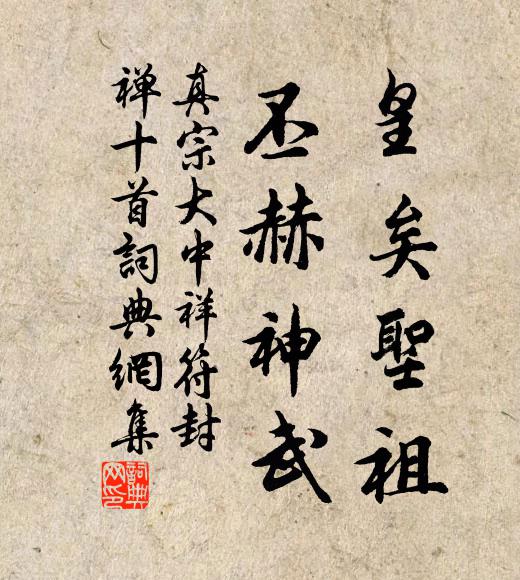 皇矣聖祖
丕赫神武
真宗大中祥符封
禅十首詞典網集
詞典网印